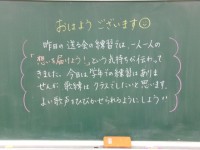 おはようございます☺
昨日の送る会の練習では、一人一人の
「想いを届けよう」という気持ちが伝わって
きました。今日は学年での練習は創りま
せんが、歌練はクラスでしたいと思います。
よい歌声をひびかせられるようにしよう!!